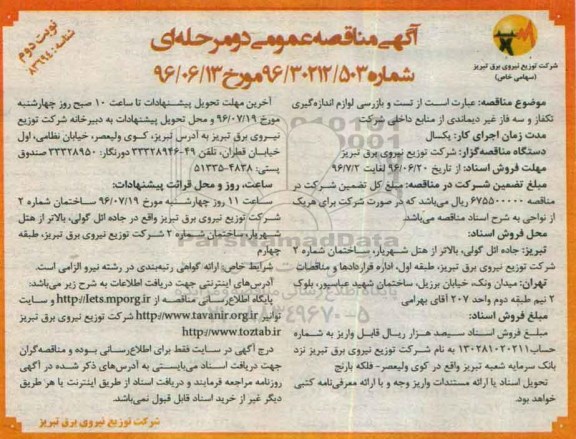 نوبت دوم
شناسه: ۸۳۱۹۴
آگهی مناقصه عمومی دو مرحله‌ای
شماره ۹۶/۳۰۲۱۲/۵۰۳ مورخ ۹۶/۰۶/۱۳
شرکت توزیع نیروی برق تبریز
(سهامی خاص)
موضوع مناقصه: عبارت است از تست و بازرسی لوازم اندازه‌گیری
تکفاز و سه فاز غیر دیماندی از منابع داخلی شرکت
مدت زمان اجرای کار: یکسال
دستگاه مناقصه‌گزار: شرکت توزیع نیروی برق تبریز
مهلت فروش اسناد: از تاریخ ۹۶/۰۶/۲۰ لغایت ۹۶/۷/۲
مبلغ تضمین شرکت در مناقصه: مبلغ کل تضمین شرکت در
مناقصه ۶۷۵۵۰۰۰۰۰ ریال می‌باشد که در صورت شرکت برای هریک
از نواحی به شرح اسناد مناقصه می‌باشد.
محل فروش اسناد:
تبریز: جاده ائل گولی، بالاتر از هتل شهریار، ساختمان شماره ۲
شرکت توزیع نیروی برق تبریز، طبقه اول، اداره قراردادها و مناقصات
تهران: میدان ونک، خیابان برزیل، ساختمان شهید عباسپور، بلوک
۲ نیم طبقه دوم واحد ۲۰۷ آقای بهرامی
مبلغ فروش اسناد:
مبلغ فروش اسناد سیصد هزار ریال قابل واریز به شماره
حساب ۱۳۰۲۸۱۰۲۰۲۱۱ به نام شرکت توزیع نیروی برق تبریز نزد
بانک سرمایه شعبه تبریز واقع در کوی ولیعصر- فلکه بارنج
تحویل اسناد با ارائه مستندات واریز وجه و با ارائه معرفی‌نامه کتبی
خواهد بود.
آخرین مهلت تحویل پیشنهادات تا ساعت ۱۰ صبح روز چهارشنبه
مورخ ۹۶/۰۷/۱۹ و محل تحویل پیشنهادات به دبیرخانه شرکت توزیع
نیروی برق تبریز به آدرس تبریز، کوی ولیعصر، خیابان نظامی، اول
خیابان قطران، تلفن ۴۹-۳۳۳۲۸۹۴۶ دورنگار: ۳۳۳۲۸۹۵۰ صندوق
پستی: ۴۸۳۸-۵۱۳۳۵
ساعت، روز و محل قرائت پیشنهادات:
ساعت ۱۱ روز چهارشنبه مورخ ۹۶/۰۷/۱۹ ساختمان شماره ۲
شرکت توزیع نیروی برق تبریز واقع در جاده ائل گولی، بالاتر از هتل
شهریار، ساختمان شماره ۲ شرکت توزیع نیروی برق تبریز، طبقه
چهارم
شرایط خاص: ارائه گواهی رتبه‌بندی در رشته نیرو الزامی است.
آدرس‌های اینترنتی جهت دریافت اطلاعات به شرح زیر می‌باشد:
پایگاه اطلاع‌رسانی مناقصه از http://iets.mporg.ir و سایت
توانیر http://www.tavanir.org.ir شرکت توزیع نیروی برق تبریز
http://www.toztab.ir
درج آگهی در سایت فقط برای اطلاع‌رسانی بوده و مناقصه‌گران
جهت دریافت اسناد می‌بایستی به آدرس‌های ذکر شده در آگهی
روزنامه مراجعه فرمایند و دریافت اسناد از طریق اینترنت یا هر طریق
دیگر غیر از خرید اسناد قابل قبول نمی‌باشد.
شرکت توزیع نیروی برق تبریز
ParsNamadData